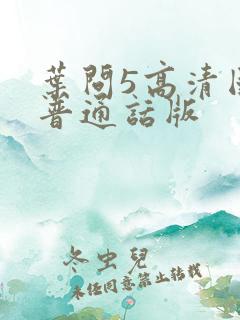 葉問5高清
普通話版
冬虫兒
未經同意禁止轉載